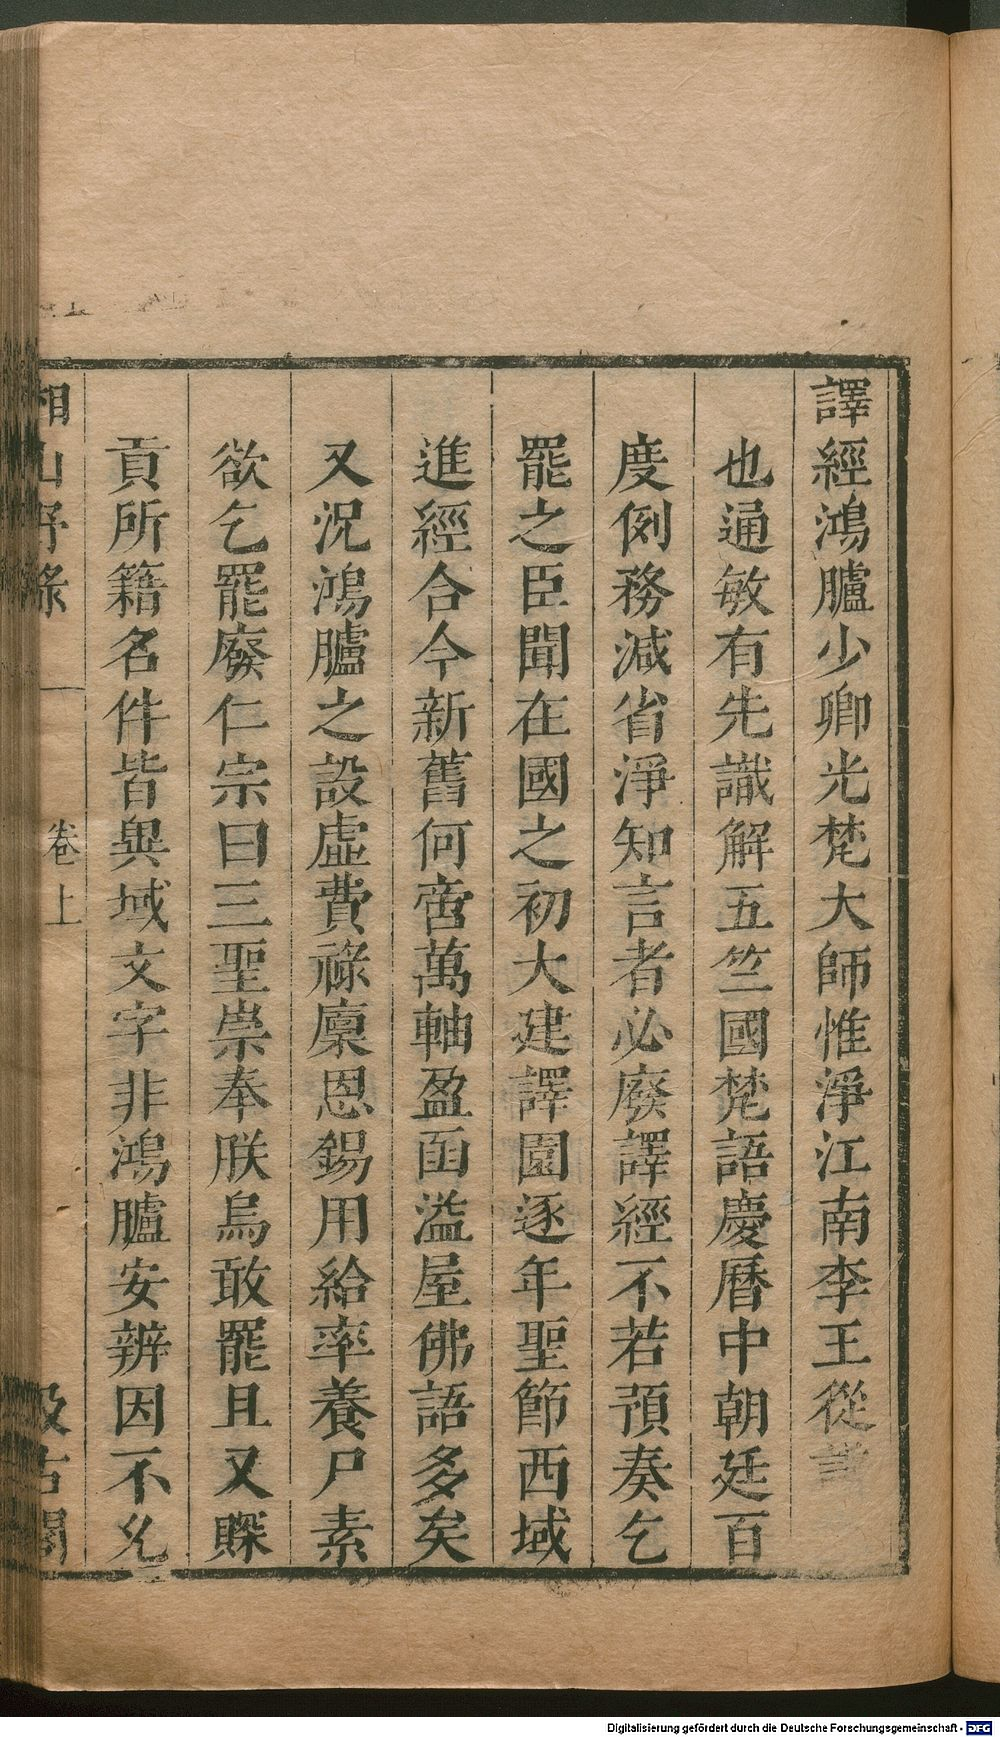 譯經鴻臚少卿光梵大師惟淨江南李王從
也通敏有先識解五竺國梵語慶曆中朝廷百
度例務減省淨知言者必廢譯經不若預奏乞
罷之臣聞在國之初大建譯園逐年聖節西域
進經合今新舊何啻萬軸盈函溢屋佛語多矣
又況鴻臚之設虛費祿廩恩錫用給率養尸素
欲乞罷廢仁宗曰三聖崇奉朕烏敢罷且又賝
貢所籍名件皆異域文字非鴻臚安辨因不允
湘山野錄 卷上 汲古閣
Digitalisierung gefördert durch die Deutsche Forschungsgemeinschaft - DFG